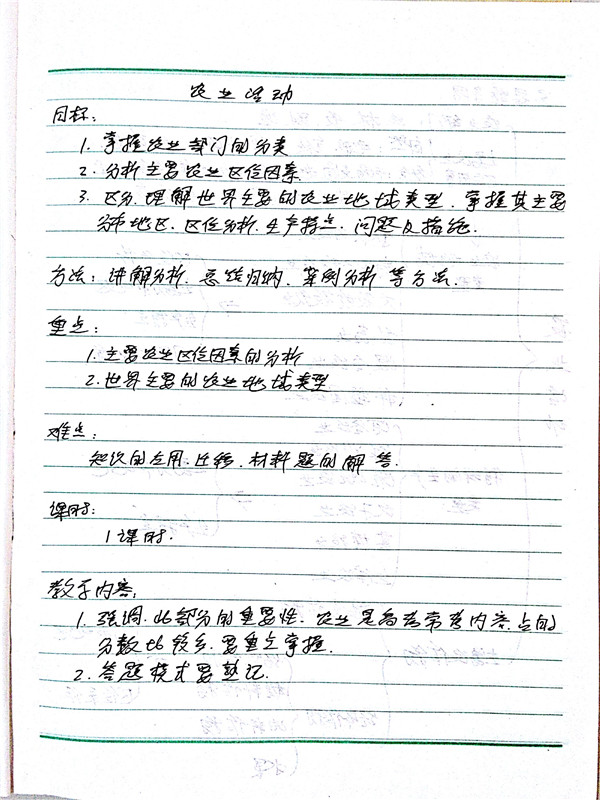 农业活动
目标:
1. 掌握农业部门的分类
2. 分析主要农业区位因素
3. 区分、理解世界主要的农业地域类型、掌握其主要
分布地区、区位分析、生产特点、问题及措施.
方法: 讲解分析、总结归纳、案例分析等方法.
重点:
1. 主要农业区位因素的分析
2. 世界主要的农业地域类型
难点:
知识的应用、迁移、材料题的解答.
课时:
1课时.
教学内容:
1. 强调此部分的重要性、农业是高考常考内容、占的
分数比较多、要重点掌握.
2. 答题模式要熟记.